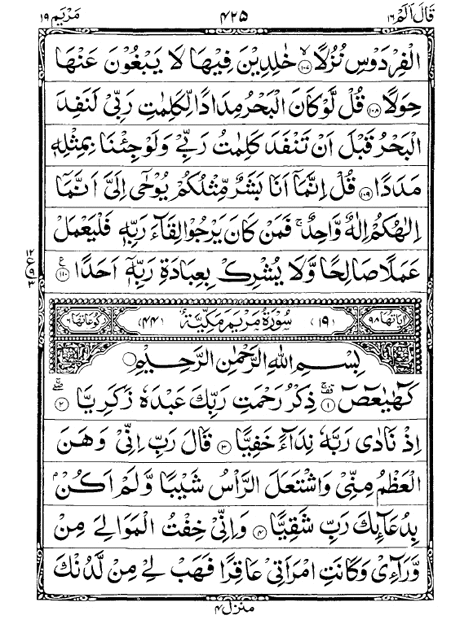 قَالَ اَلَمْ ١٦ ٤٢٥ مَرْيَم ١٩
الْفِرْدَوْسِ نُزُلًا ۙ﴿١٠٧﴾ خٰلِدِيْنَ فِيْهَا لَا يَبْغُوْنَ عَنْهَا
حِوَلًا ﴿١٠٨﴾ قُلْ لَّوْ كَانَ الْبَحْرُ مِدَادًا لِّكَلِمٰتِ رَبِّيْ لَنَفِدَ
الْبَحْرُ قَبْلَ اَنْ تَنْفَدَ كَلِمٰتُ رَبِّيْ وَلَوْ جِئْنَا بِمِثْلِهٖ
مَدَدًا ﴿١٠٩﴾ قُلْ اِنَّمَآ اَنَا بَشَرٌ مِّثْلُكُمْ يُوْحٰٓى اِلَيَّ اَنَّمَآ
اِلٰهُكُمْ اِلٰهٌ وَّاحِدٌ ۚ فَمَنْ كَانَ يَرْجُوْا لِقَآءَ رَبِّهٖ فَلْيَعْمَلْ
عَمَلًا صَالِحًا وَّلَا يُشْرِكْ بِعِبَادَةِ رَبِّهٖٓ اَحَدًا ﴿١١٠﴾ ع
١٢
ع ٩
٣
اٰيَاتُهَا ٩٨ ﴿١٩﴾ سُوْرَةُ مَرْيَمَ مَكِّيَّةٌ ﴿٤٤﴾ رُكُوْعَاتُهَا ٦
بِسْمِ اللّٰهِ الرَّحْمٰنِ الرَّحِيْمِ
كٓهٰيٰعٓصٓ ﴿١﴾ ذِكْرُ رَحْمَتِ رَبِّكَ عَبْدَهٗ زَكَرِيَّا ﴿٢﴾
اِذْ نَادٰى رَبَّهٗ نِدَآءً خَفِيًّا ﴿٣﴾ قَالَ رَبِّ اِنِّيْ وَهَنَ
الْعَظْمُ مِنِّيْ وَاشْتَعَلَ الرَّاْسُ شَيْبًا وَّلَمْ اَكُنْۢ
بِدُعَآئِكَ رَبِّ شَقِيًّا ﴿٤﴾ وَاِنِّيْ خِفْتُ الْمَوَالِيَ مِنْ
وَّرَآءِيْ وَكَانَتِ امْرَاَتِيْ عَاقِرًا فَهَبْ لِيْ مِنْ لَّدُنْكَ
منزل ٤